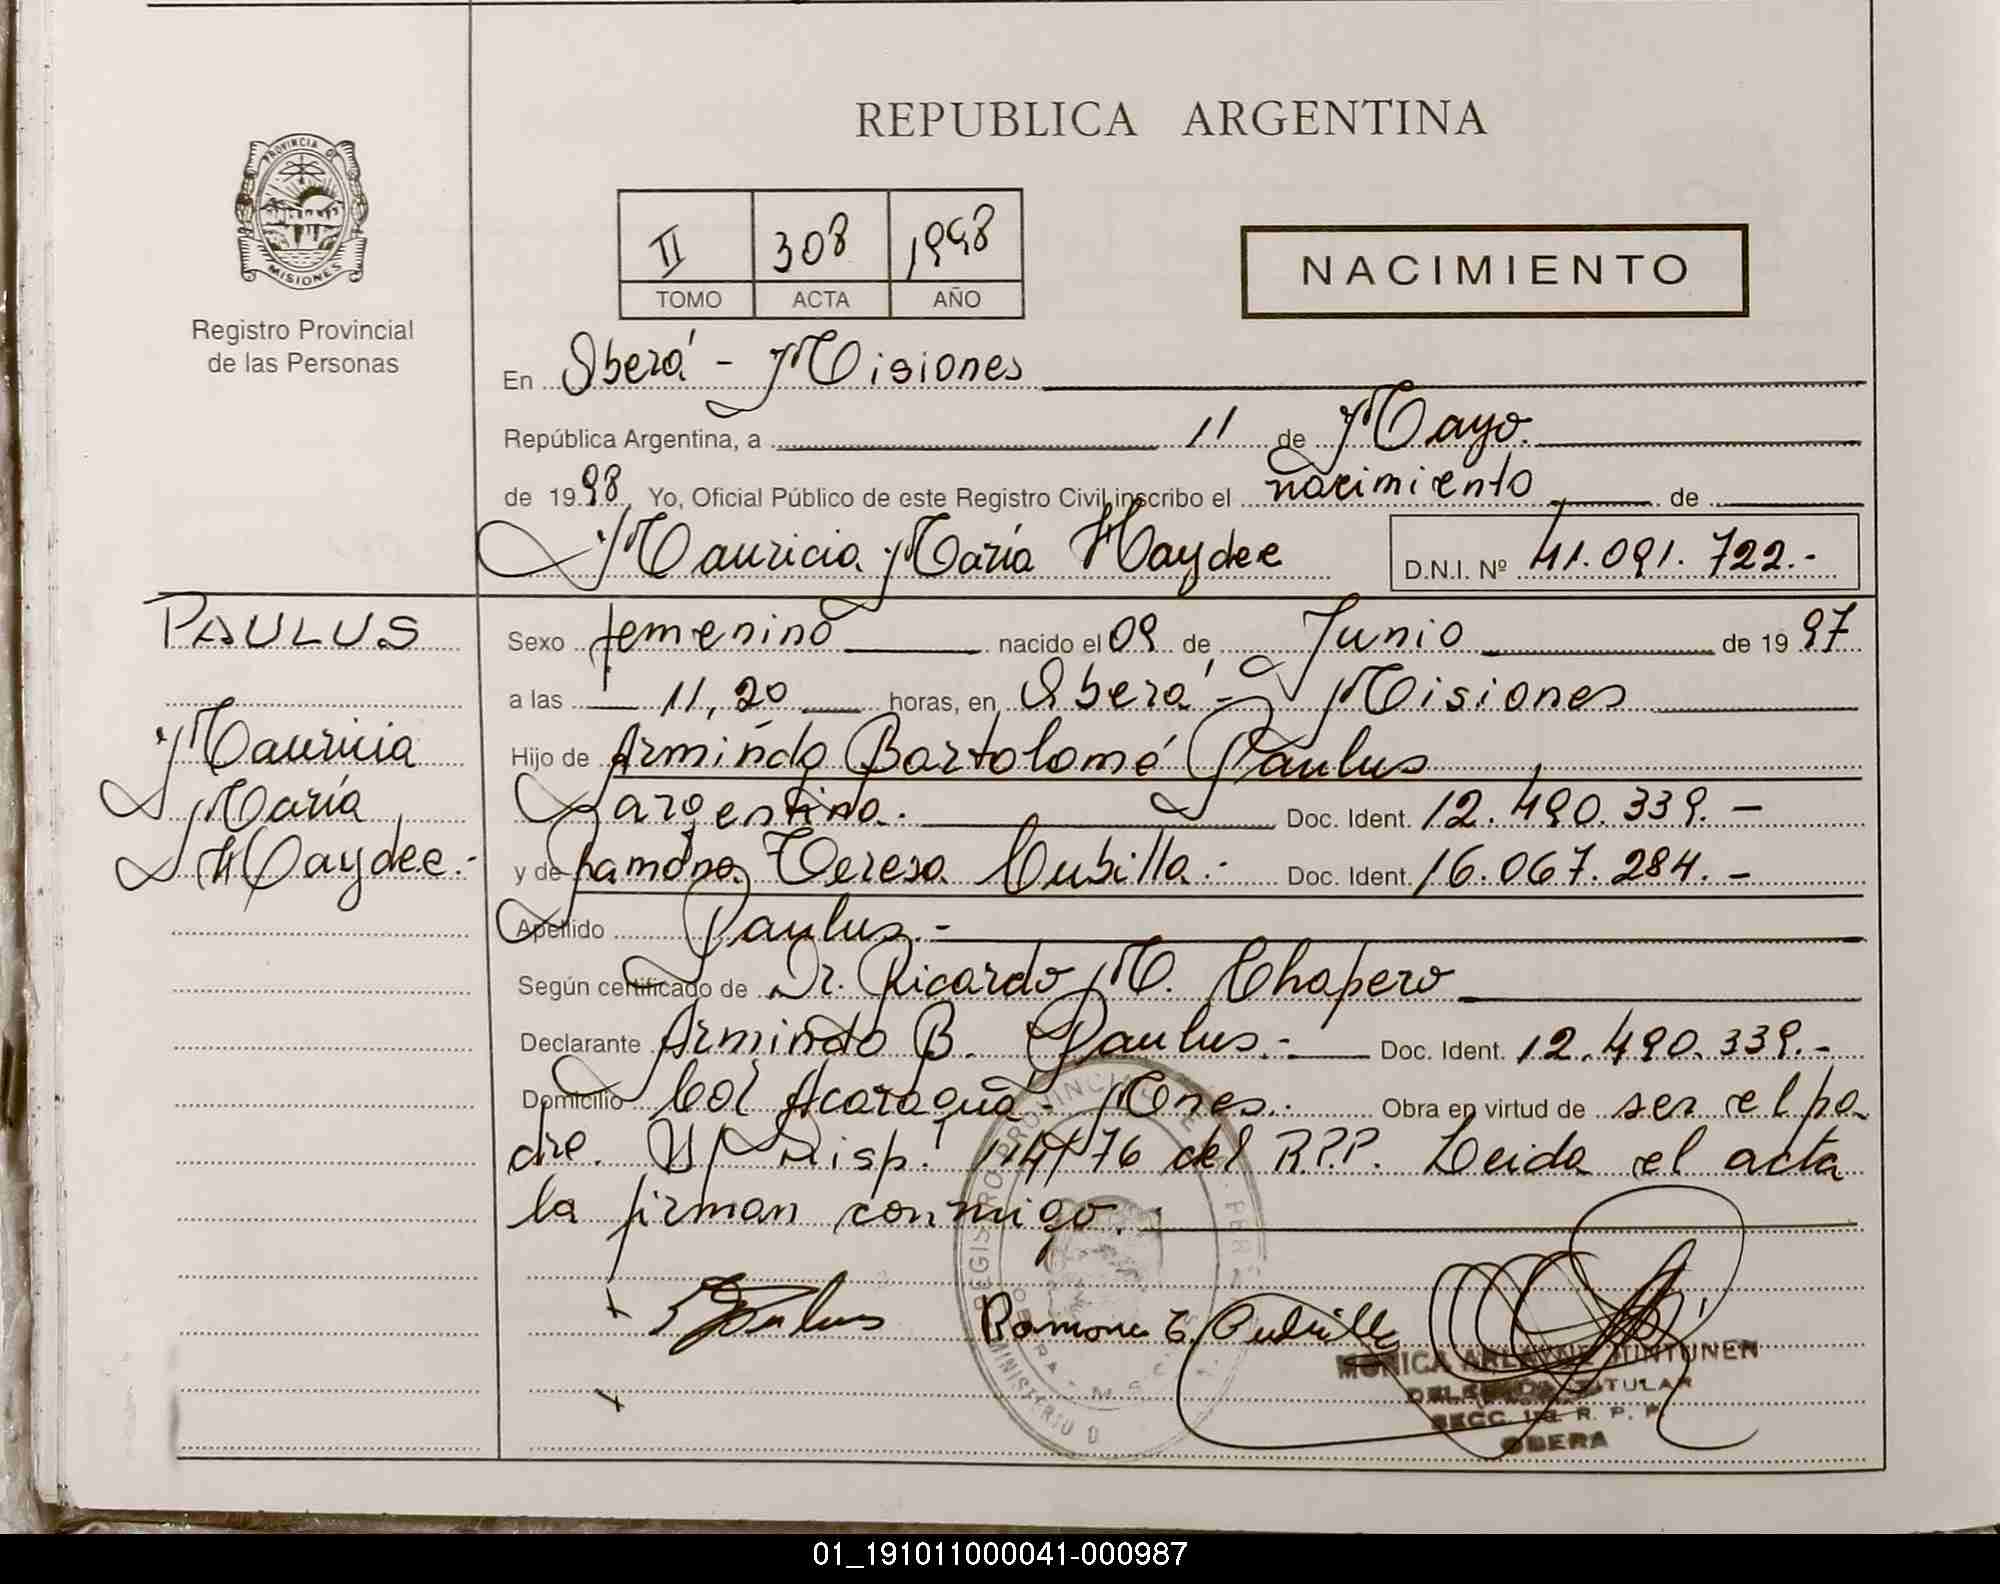 REPUBLICA ARGENTINA
PROVINCIA DE MISIONES
Registro Provincial
de las Personas
II 308 1998
TOMO ACTA AÑO
NACIMIENTO
En Oberá - Misiones
República Argentina, a 11 de Mayo.
de 1998 Yo, Oficial Público de este Registro Civil inscribo el nacimiento de
Mauricia María Haydee D.N.I. Nº 41.091.722.-
PAULUS
Mauricia
María
Haydee.-
Sexo femenino nacido el 09 de Junio de 1997
a las 11,20 horas, en Oberá - Misiones
Hijo de Armindo Bartolomé Paulus
argentino. Doc. Ident. 12.490.339.-
y de Ramona Teresa Cubilla.- Doc. Ident. 16.067.284.-
Apellido Paulus.-
Según certificado de Dr. Ricardo M. Chapero
Declarante Armindo B. Paulus.- Doc. Ident. 12.490.339.-
Domicilio Col Acaraguá - Mnes.- Obra en virtud de ser el pa
dre. Disp. 114/76 del R.P.P. Leida el acta
la firman conmigo.
Paulus Ramona T. Cubilla
MONICA ARLAYNE
TITULAR
SECC. R. P. P.
OBERA
01_191011000041-000987